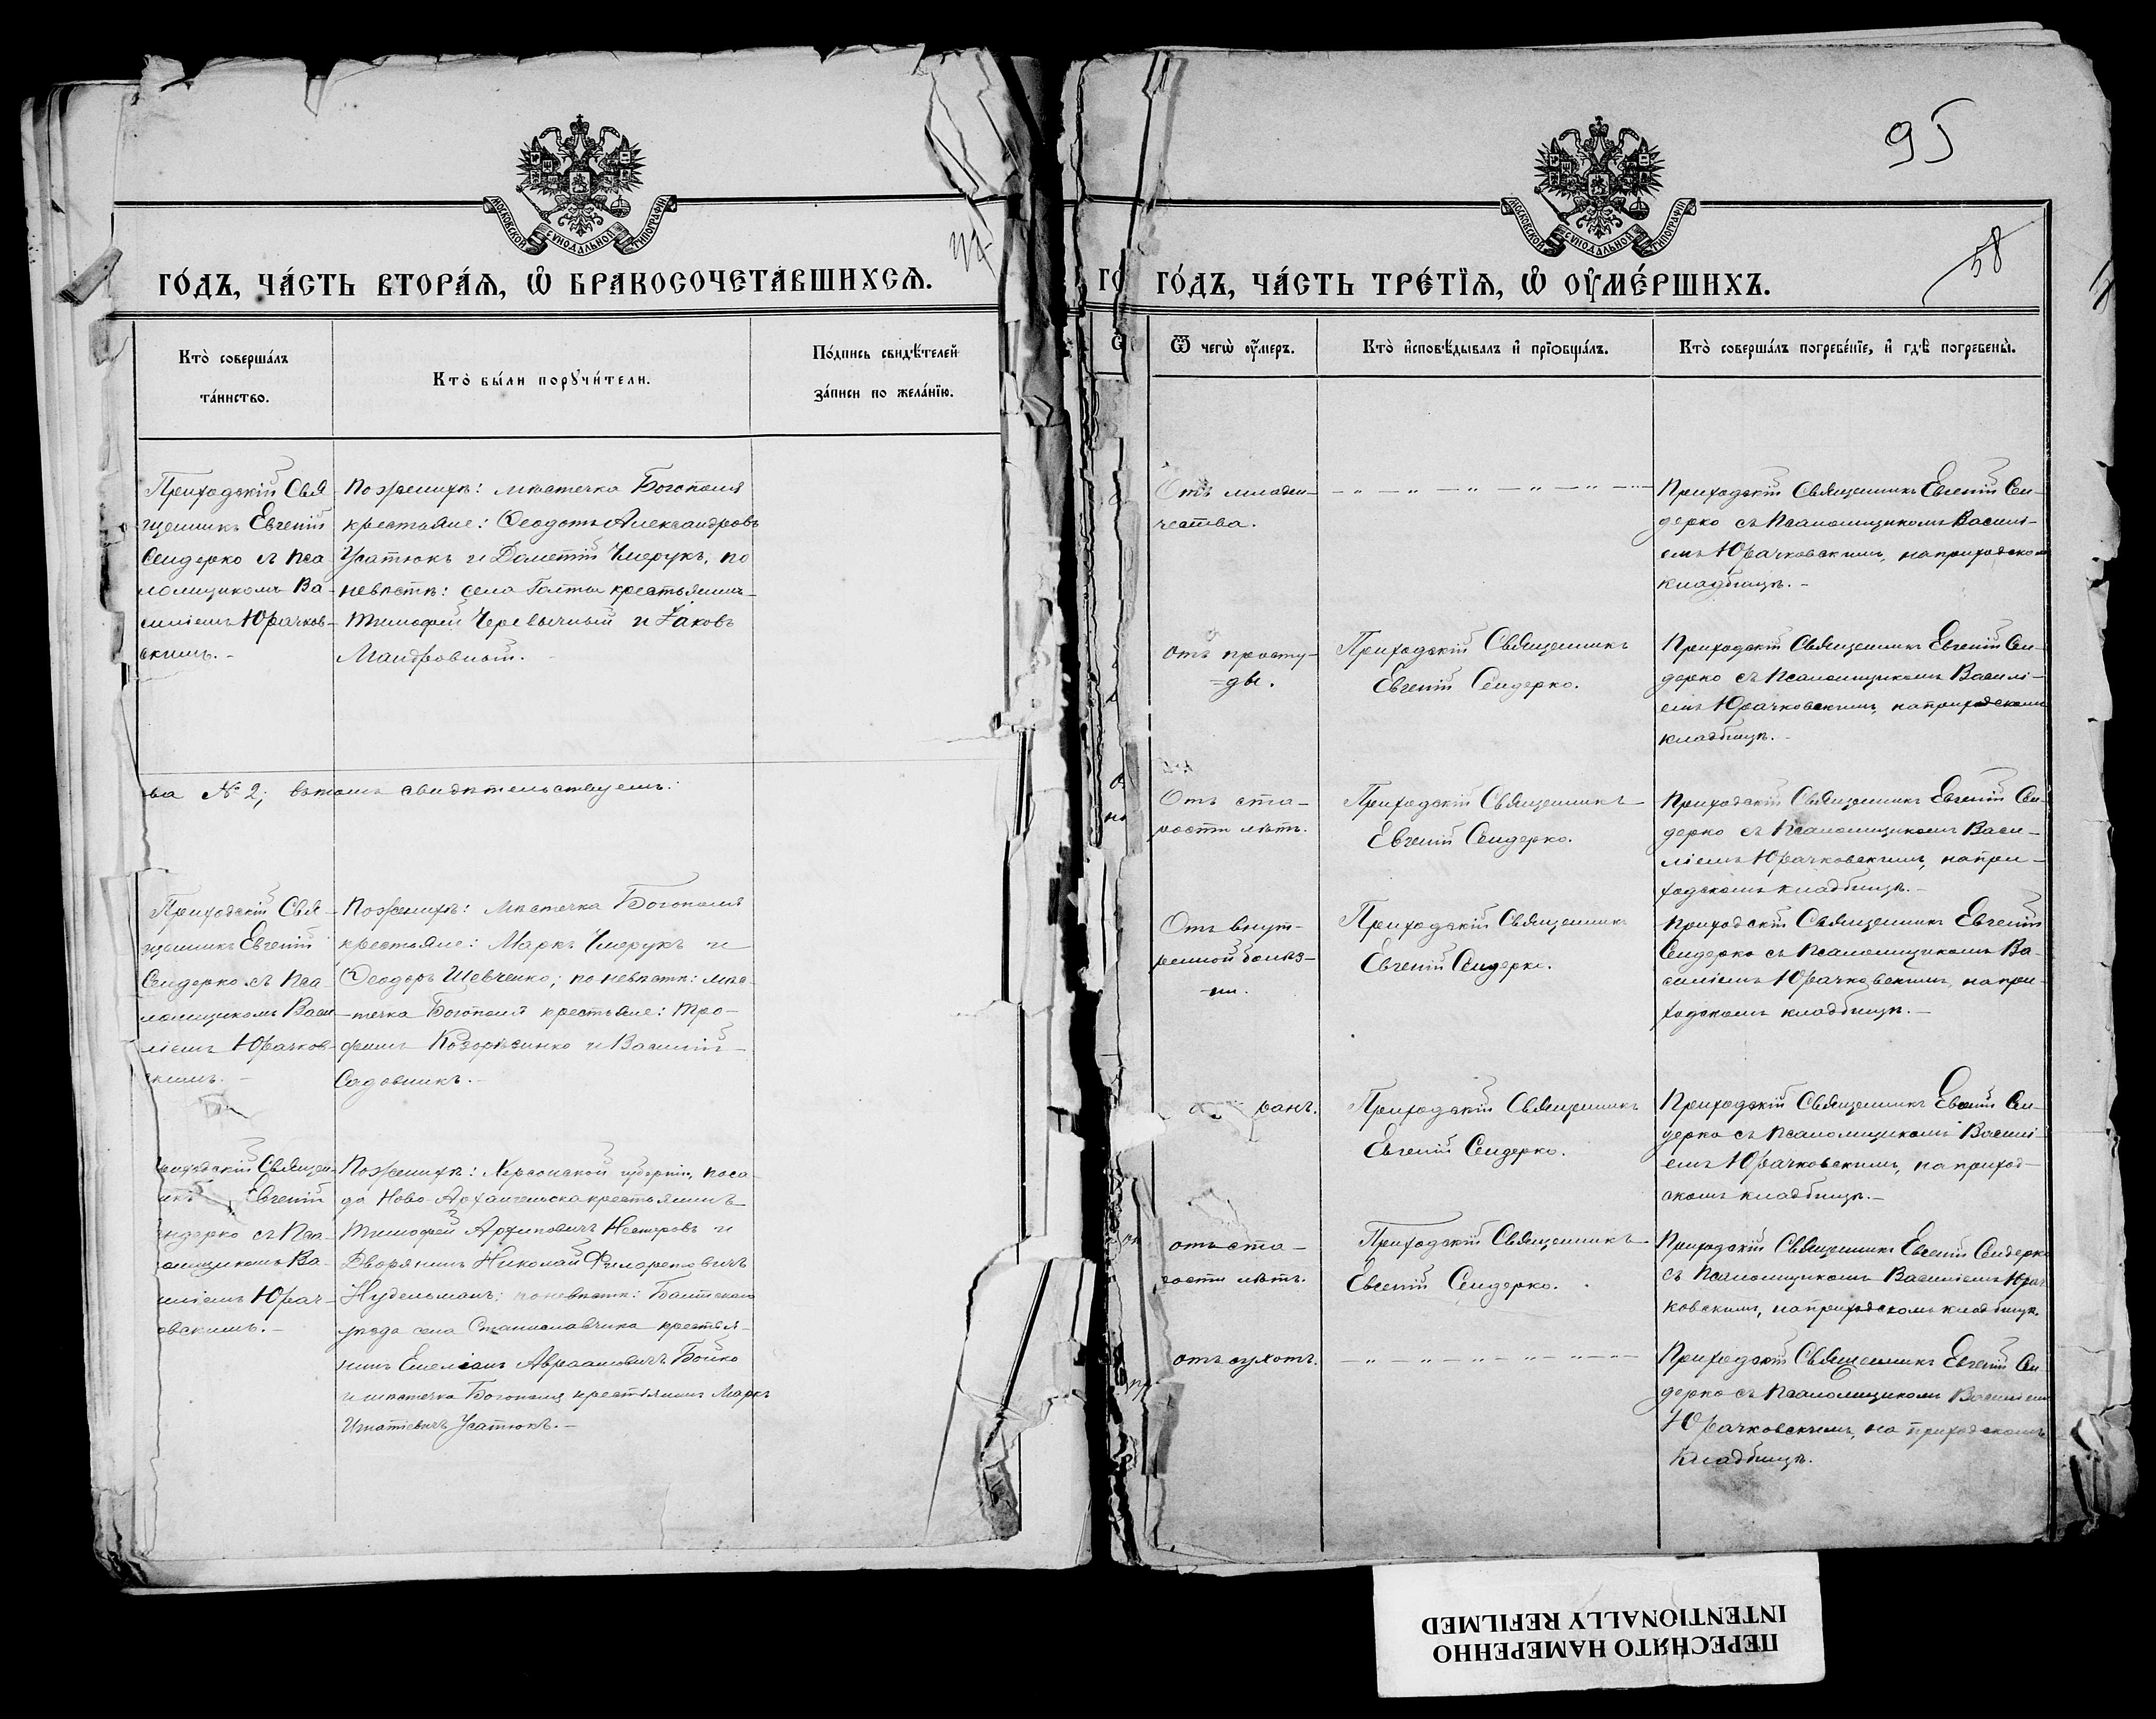 МОСКОВСКОЙ СУНОДАЛЬНОЙ ТИПОГРАФІИ
ГО́ДЪ, ЧА́СТЬ ВТОРА́Я, Ѽ БРАКОСОЧЕТА́ВШИХСЯ.
Кто̀ соверша́лъ
та́инство.
Кто̀ бы́ли порꙋчи́тели.
По́дпись свидѣ́телей
за́писи по жела́нїю.
Приходскій Свя
щенникъ Евгеній
Сендерко съ Пса
ломщикомъ Ва-
силіемъ Юрачков-
скимъ.-
По женихѣ: мѣстечка Богополя
крестьяне: Ѳеодотъ Александровъ
Усатюкъ и Дометій Чмерукъ, по
невѣстѣ: села Голты крестьянинъ
Тимофей Черевичный и Іаковъ
ва № 2; въ томъ свидѣтельствуемъ:
Приходскій Свя-
щенникъ Евгеній
Сендерко съ Пса-
ломщикомъ Васи-
ліемъ Юрачков-
скимъ.-
По женихѣ: мѣстечка Богополя
крестьяне: Маркъ Чмерукъ и
Ѳеодоръ Шевченко; по невѣстѣ: мѣс-
-течка Богополя крестьяне: Тро-
фимъ и Василій
Садовникъ.-
риходскій Священ-
Евгеній
ендерко съ Пса-
омщикомъ Ва-
силіемъ Юрач-
овскимъ.-
По женихѣ: Херсонской губерніи, поса-
да Ново-Архангельска крестьянинъ
Тимофей Архиповичъ Нестеровъ и
Дворянинъ Николай Филаретовичъ
Нудельманъ; по невѣстѣ: Балтскаго
уѣзда села Станиславчика крестья-
нинъ Емеліанъ Авраамовичъ Бойко
и мѣстечка Богополя крестьянинъ Маркъ
Игнатіевичъ Усатюкъ.-
95
58
МОСКОВСКОЙ СУНОДАЛЬНОЙ ТИПОГРАФІИ
ГО́ДЪ, ЧА́СТЬ ТРЕ́ТЇЯ, Ѽ ОУ҆МЕ́РШИХЪ.
Ѿ чегѡ̀ ᲂу҆́меръ.
Кто̀ и҆сповѣ́дывалъ и҆ прїѡбща́лъ.
Кто̀ соверша́лъ погребе́нїе, и҆ гдѣ̀ погребены̀.
Отъ младен-
чества.
Приходскій Священникъ Евгеній Сен-
дерко съ Псаломщикомъ Василі-
емъ Юрачковскимъ, на приходскомъ
кладбищѣ.-
отъ просту-
=ды.
Приходскій Священникъ
Евгеній Сендерко.
Приходскій Священникъ Евгеній Сен-
дерко съ Псаломщикомъ Василі-
емъ Юрачковскимъ, на приходскомъ
кладбищѣ.-
Отъ ста-
рости лѣтъ.
Приходскій Священникъ
Евгеній Сендерко.
Приходскій Священникъ Евгеній Сен-
дерко съ Псаломщикомъ Васи-
ліемъ Юрачковскимъ, на при-
ходскомъ кладбищѣ.-
Отъ внут-
ренной болѣз-
-ни.
Приходскій Священникъ
Евгеній Сендерко.
Приходскій Священникъ Евгеній
Сендерко съ Псаломщикомъ Ва-
силіемъ Юрачковскимъ, на при-
ходскомъ кладбищѣ.-
ранъ.
Приходскій Священникъ
Евгеній Сендерко.
Приходскій Священникъ Евгеній Сен-
дерко съ Псаломщикомъ Василі-
емъ Юрачковскимъ, на приход-
скомъ кладбищѣ.-
отъ ста-
рости лѣтъ.
Приходскій Священникъ
Евгеній Сендерко.
Приходскій Священникъ Евгеній Сендерко
съ Псаломщикомъ Василіемъ Юрач
ковскимъ, на приходскомъ кладбищѣ.
отъ сухотъ.
Приходскій Священникъ Евгеній Сен-
дерко съ Псаломщикомъ Василіемъ
Юрачковскимъ, на приходскомъ
кладбищѣ.
ПЕРЕСНЯТО НАМЕРЕННО
INTENTIONALLY REFILMED